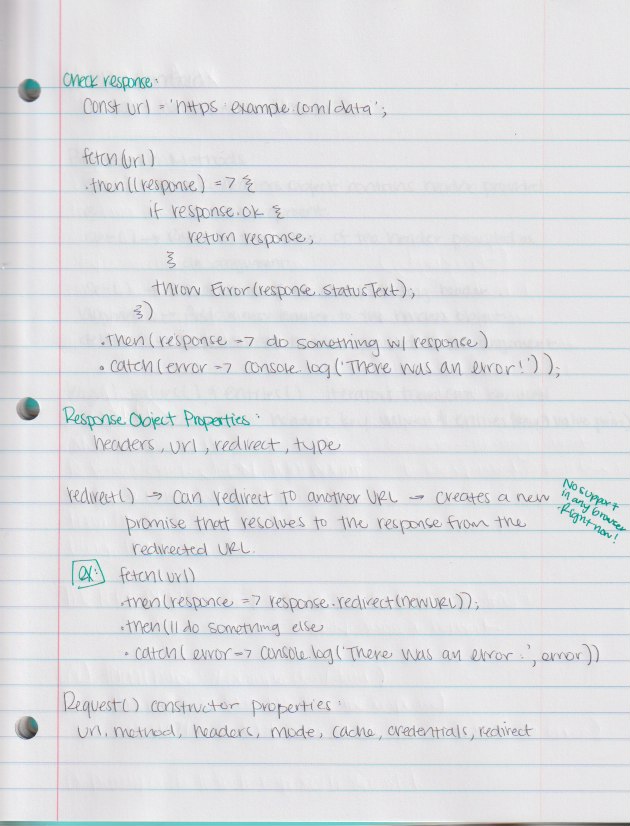 Check response:
const url = 'https: example.com/data';
fetch(url)
.then((response) => {
if response.ok {
return response;
}
throw Error(response.statusText);
})
.then(response => do something w/ response)
.catch(error => console.log('There was an error!'));
Response Object Properties:
headers, url, redirect, type
redirect() → can redirect to another URL → creates a new
promise that resolves to the response from the
redirected URL.
No support
in any browser
right now!
ex:
fetch(url)
.then(responce => response.redirect(newURL));
.then(// do something else
.catch(error => console.log('There was an error:', error))
Request() constructor properties:
url, method, headers, mode, cache, credentials, redirect